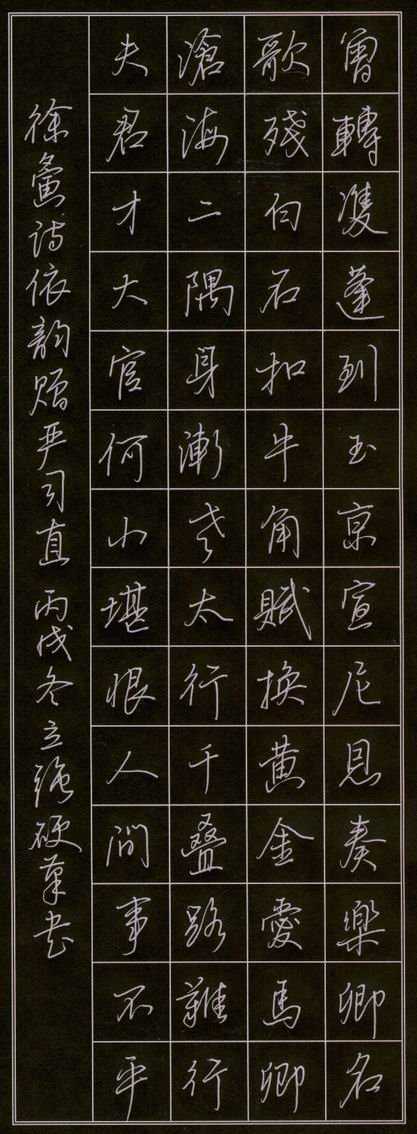 曾轉雙蓬到玉京宣尼恩奏樂卿名
歌殘白石扣牛角賦换黄金愛馬卿
滄海二隅身漸老太行千叠路難行
夫君才大官何小堪恨人間事不平
徐夤诗依韵赠严司直 丙戌冬立强硬笔书